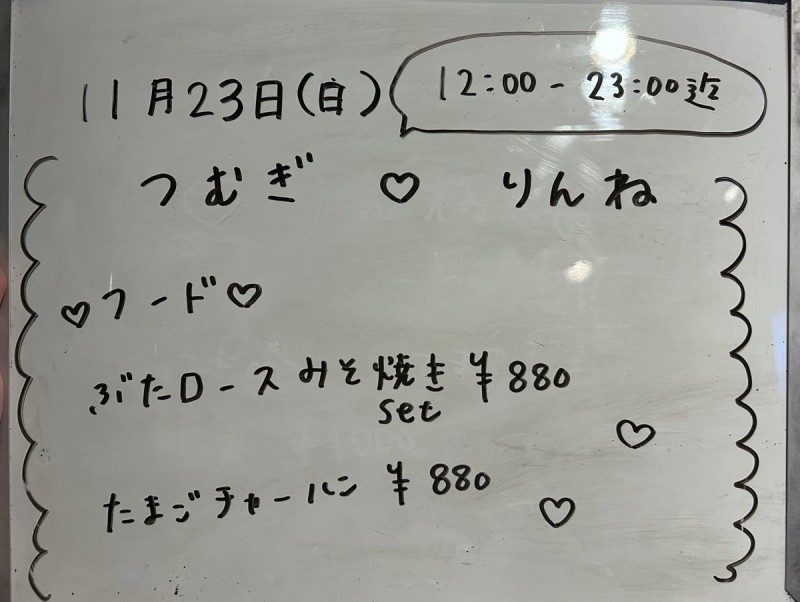 11月23日(日)
12:00 - 23:00迄
つむぎ ♡ りんね
♡フード♡
ぶたロースみそ焼き ¥880
set
たまごチャーハン ¥880